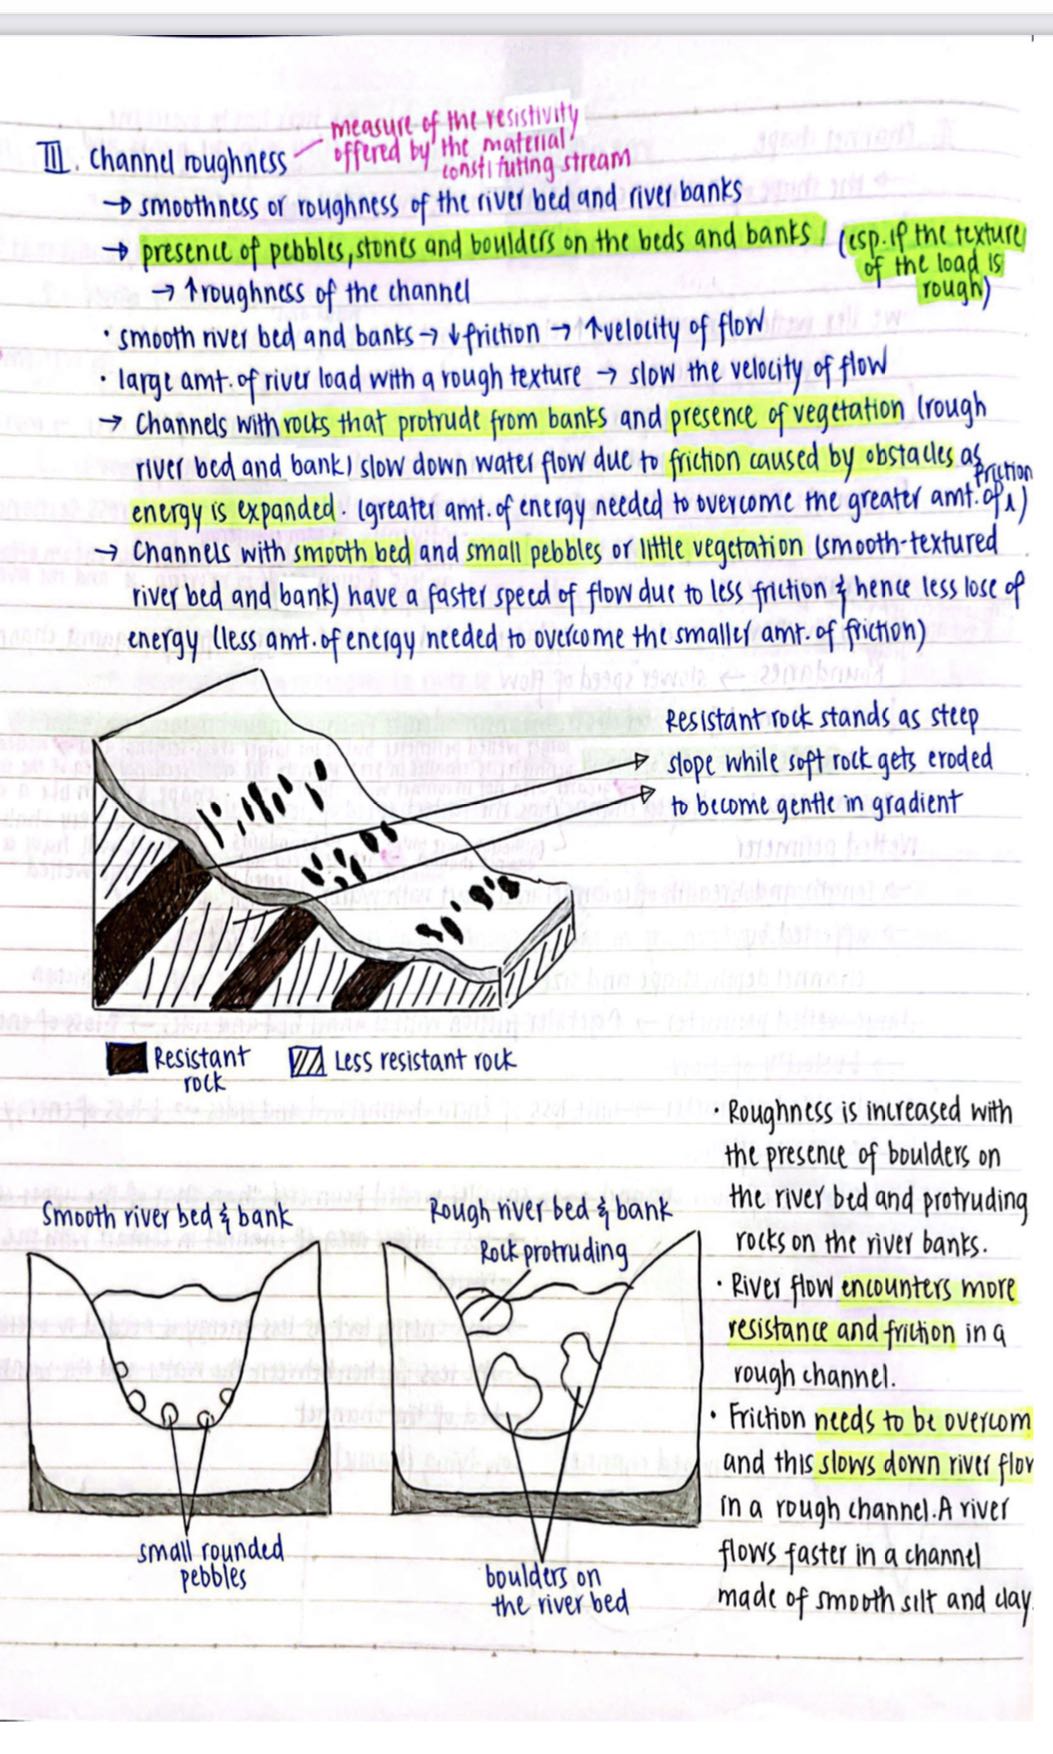 III. Channel roughness
measure of the resistivity
offered by the material
constituting stream
→ smoothness or roughness of the river bed and river banks
→ presence of pebbles, stones and boulders on the beds and banks! (esp. if the texture
of the load is
rough)
→ ↑roughness of the channel
• smooth river bed and banks → ↓friction → ↑velocity of flow
• large amt. of river load with a rough texture → slow the velocity of flow
→ Channels with rocks that protrude from banks and presence of vegetation (rough
river bed and bank) slow down water flow due to friction caused by obstacles as
energy is expanded. (greater amt. of energy needed to overcome the greater amt. of friction)
→ Channels with smooth bed and small pebbles or little vegetation (smooth-textured
river bed and bank) have a faster speed of flow due to less friction & hence less lose of
energy (less amt. of energy needed to overcome the smaller amt. of friction)
Resistant rock stands as steep
slope while soft rock gets eroded
to become gentle in gradient
Resistant
rock
Less resistant rock
Smooth river bed & bank
small rounded
pebbles
Rough river bed & bank
Rock protruding
boulders on
the river bed
• Roughness is increased with
the presence of boulders on
the river bed and protruding
rocks on the river banks.
• River flow encounters more
resistance and friction in a
rough channel.
• Friction needs to be overcom
and this slows down river flow
in a rough channel. A river
flows faster in a channel
made of smooth silt and clay